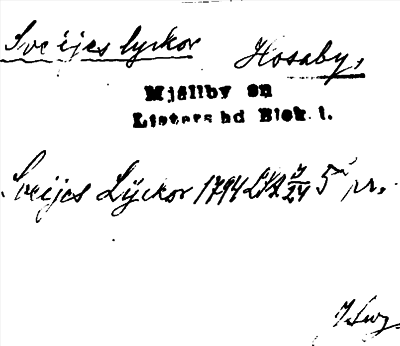 Sveijes lyckor Hosaby,
Mjällby sn
Listers hd Blek. l.
Sveijes Lÿckor 1794 LSA 5 pr.